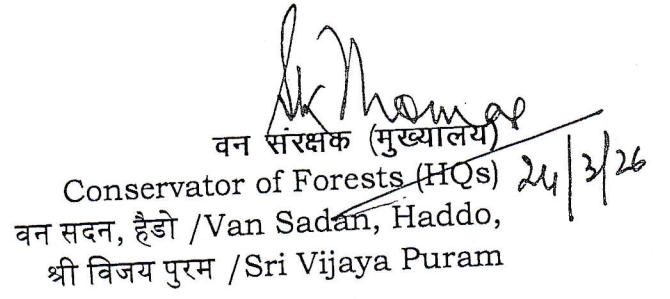 SK Thomas
वन संरक्षक (मुख्यालय)
Conservator of Forests (HQs) 24/3/26
वन सदन, हैडो /Van Sadan, Haddo,
श्री विजय पुरम /Sri Vijaya Puram